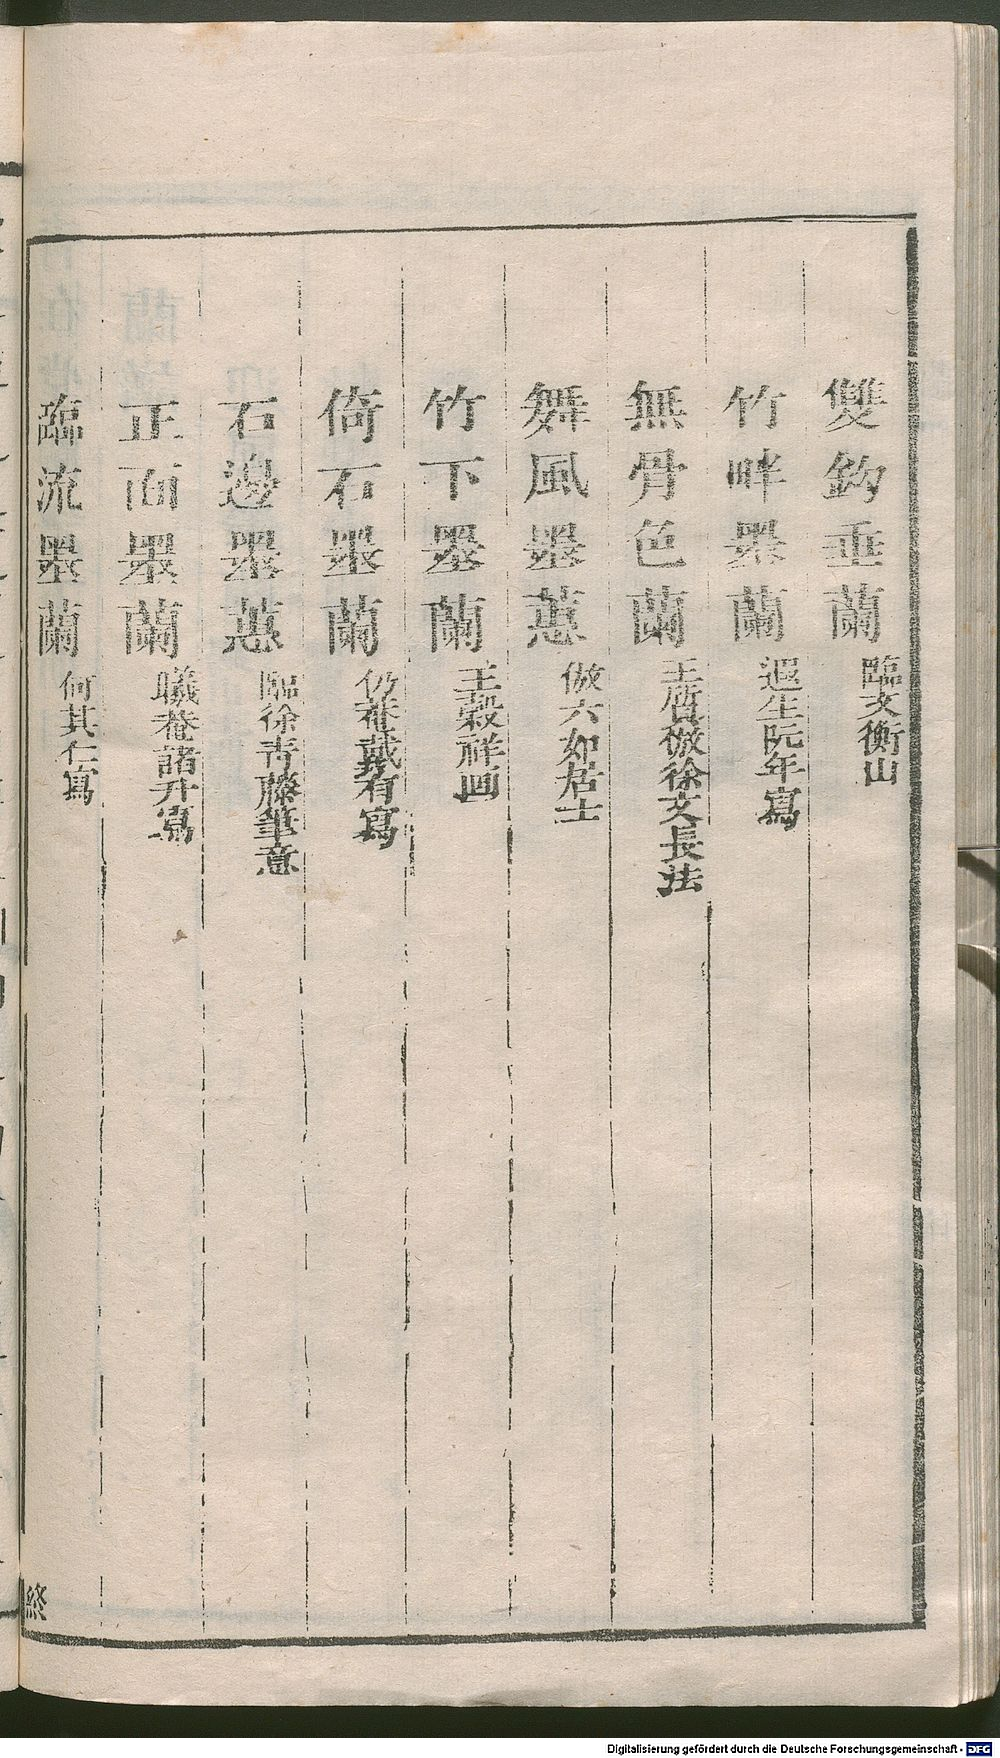 雙鈎垂蘭 臨文衡山
竹畔墨蘭 遐生阮年寫
無骨色蘭 王質倣徐文長法
舞風墨蕙 倣六如居士
竹下墨蘭 王穀祥画
倚石墨蘭 仍菴戴有寫
石邊墨蕙 臨徐靑藤筆意
正面墨蘭 曦菴諸升寫
臨流墨蘭 何其仁寫
終
Digitalisierung gefördert durch die Deutsche Forschungsgemeinschaft - DFG